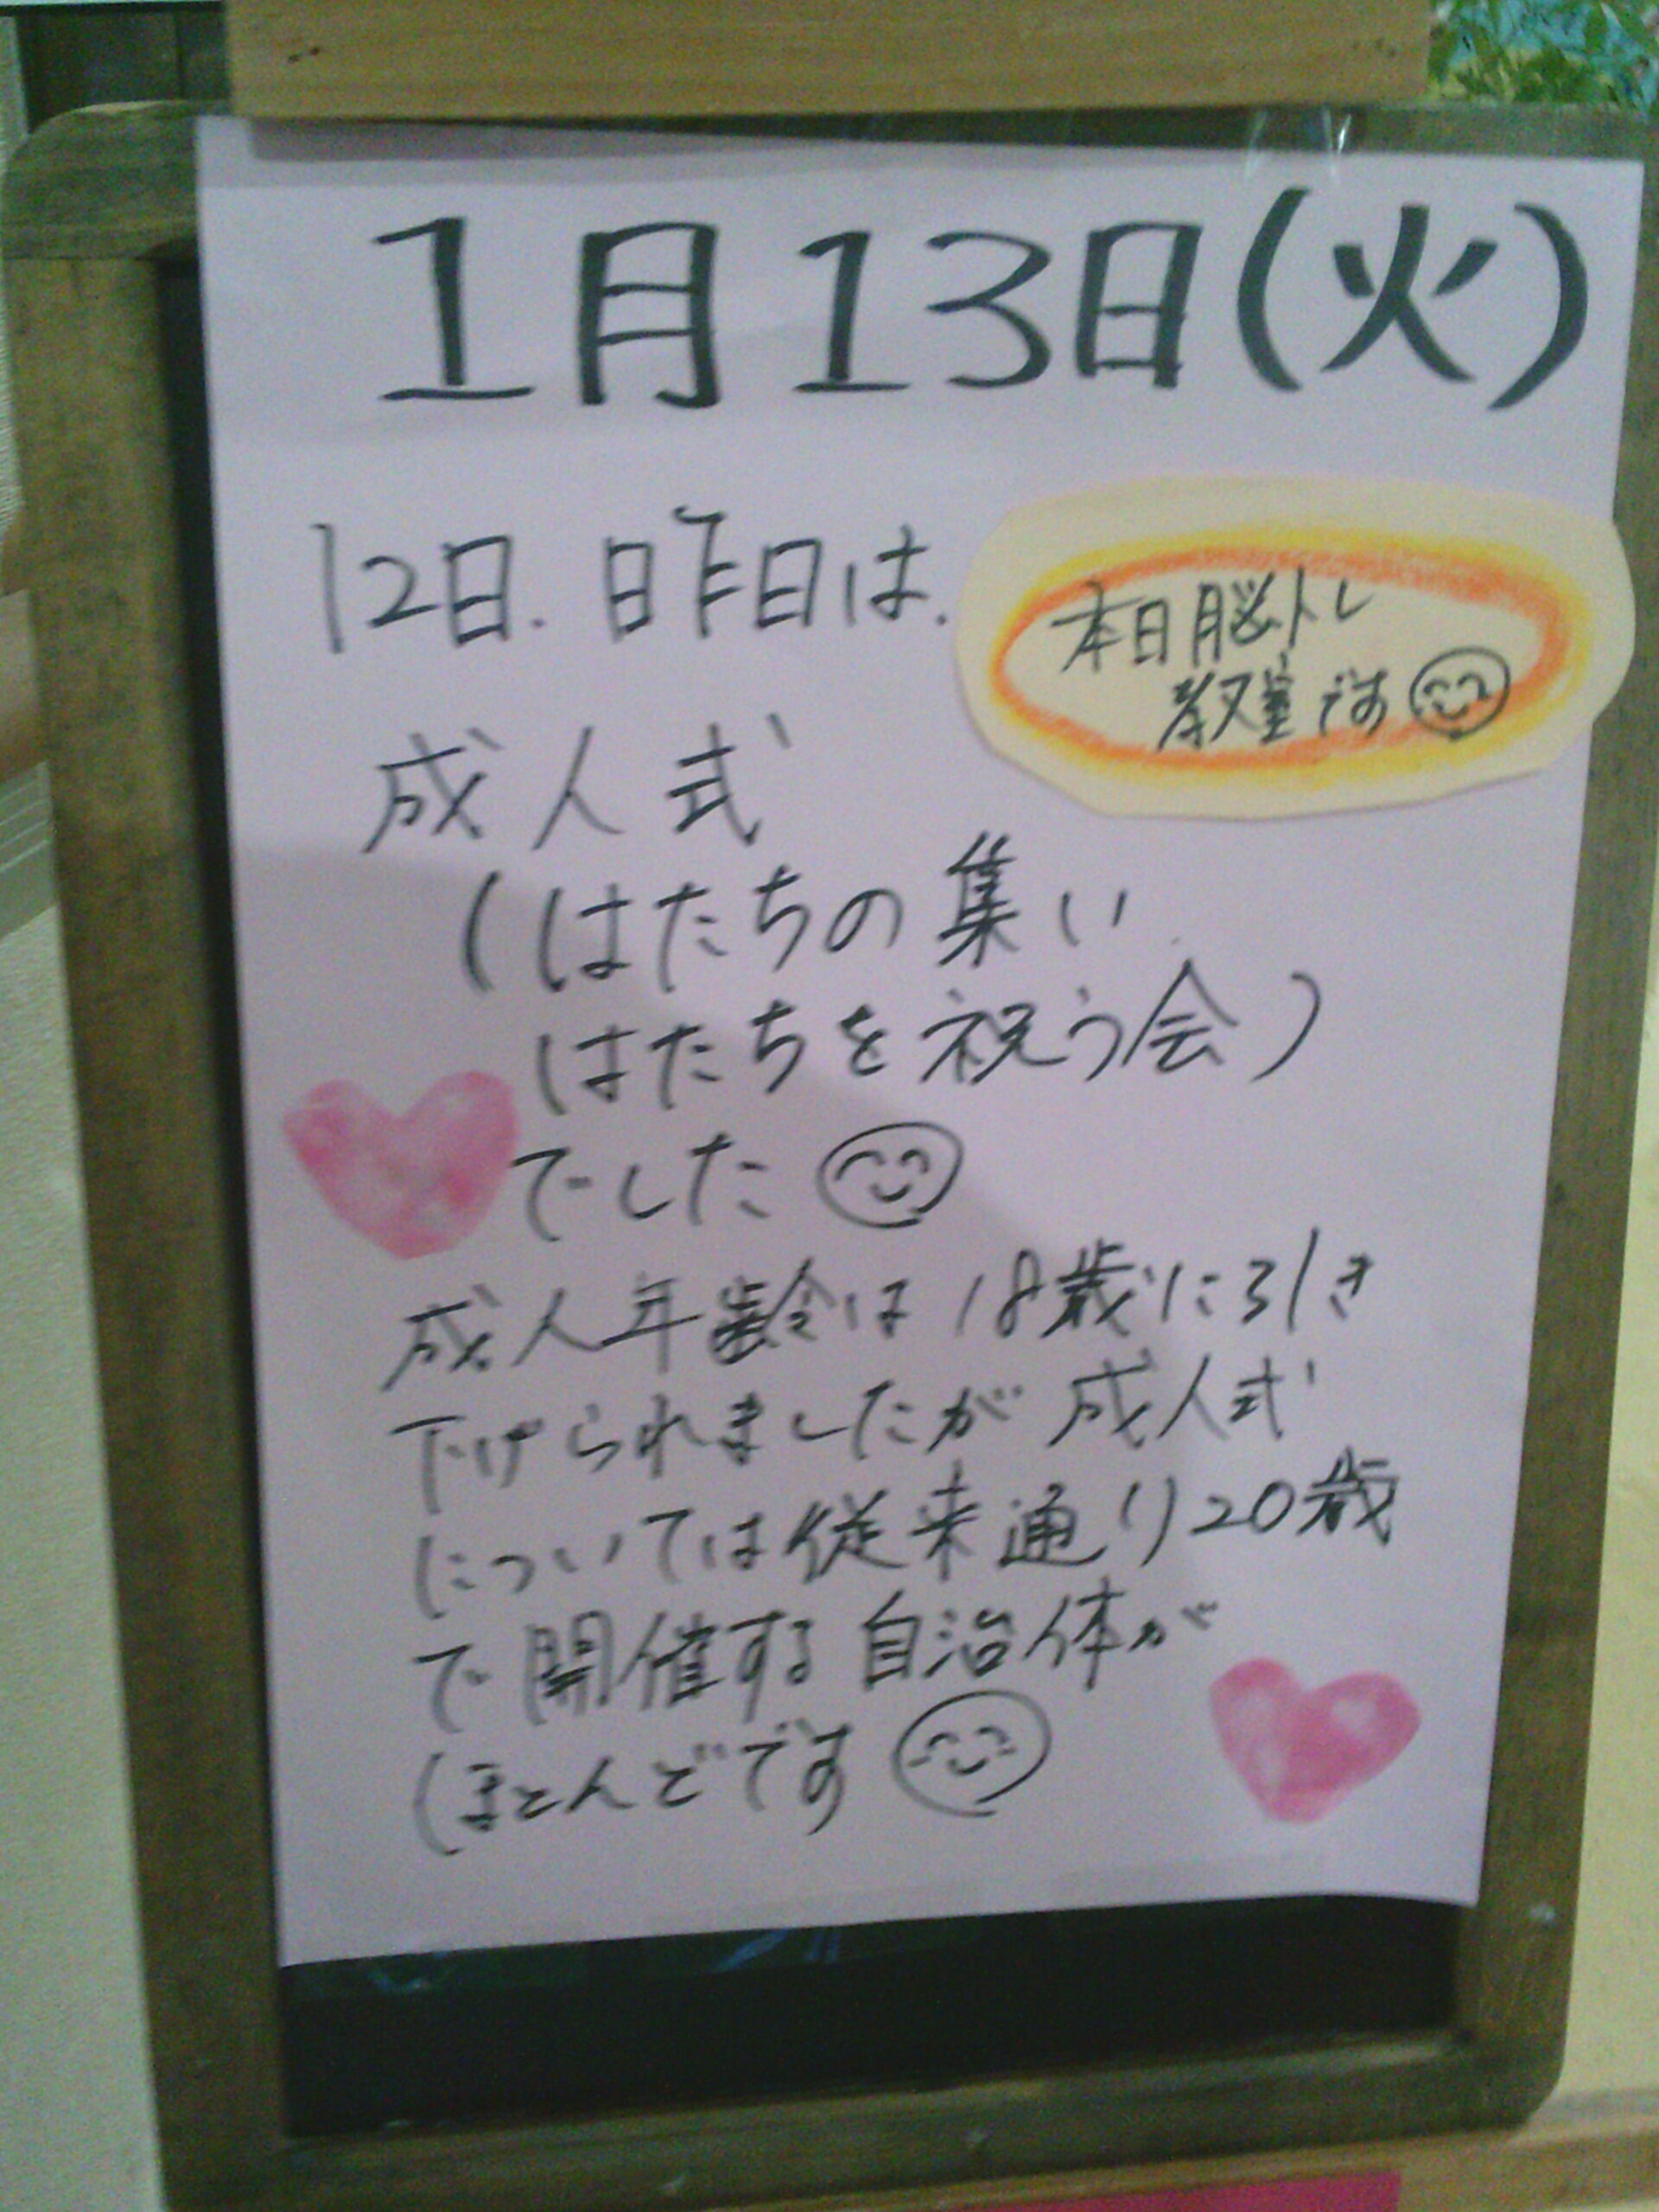 1月13日(火)
12日.昨日は.
本日脳トレ
教室です
成人式
(はたちの集い
はたちを祝う会)
でした
成人年齢は18歳に引き
下げられましたが成人式
については従来通り20歳
で開催する自治体が
ほとんどです